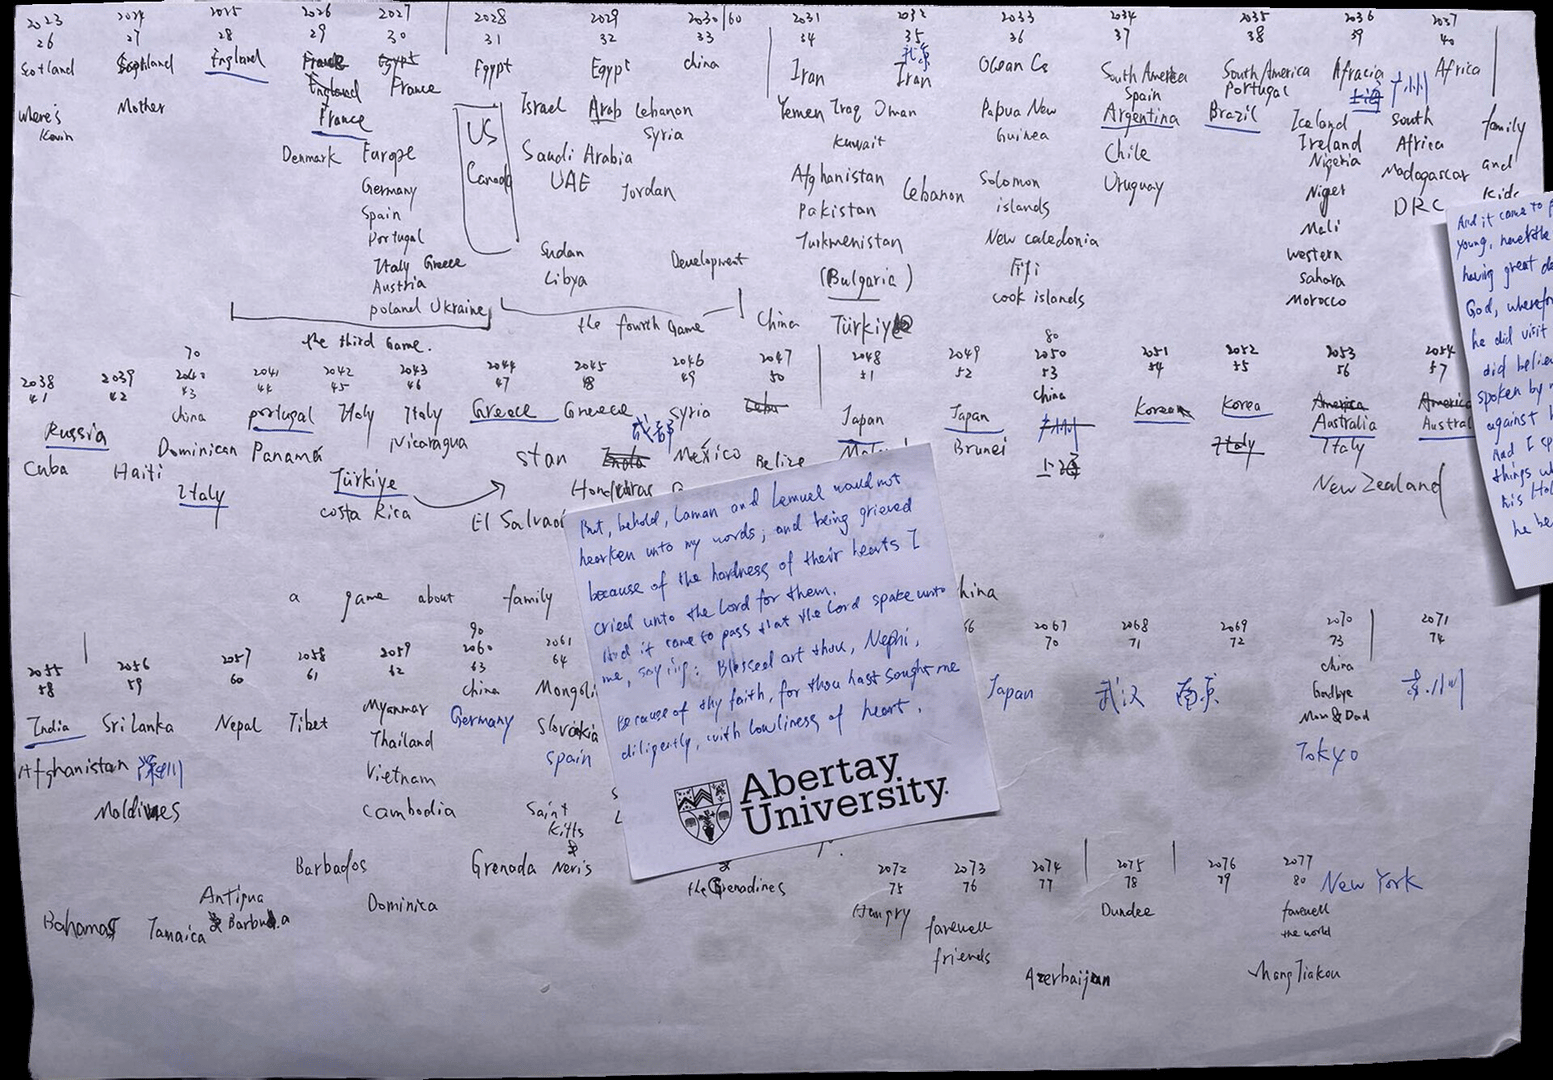 2023 2024 2025 2026 2027 2028 2029 2030/60 2031 2032 2033 2034 2035 2036 2037
26 27 28 29 30 31 32 33 34 35 36 37 38 39 40
Scotland Scotland England France Egypt Egypt Egypt China Iran Iran Ocean Cs South America South America Africa Africa
England France Spain Portugal 广州
where's Mother France US Israel Arab Lebanon Yemen Iraq Oman Papua New Argentina Brazil Iceland South family
Kevin Syria Kuwait Guinea Ireland Africa and
Denmark Europe Canada Saudi Arabia Afghanistan Lebanon Solomon Chile Nigeria Madagascar kids
Germany UAE Jordan Pakistan islands Uruguay Niger DRC
Spain Turkmenistan New Caledonia Mali
Portugal Sudan Development (Bulgaria) Fiji western
Italy Greece Libya cook islands Sahara
Austria Morocco
Poland Ukraine
the third Game. the fourth Game China Türkiye
70 80
2038 2039 2040 2041 2042 2043 2044 2045 2046 2047 2048 2049 2050 2051 2052 2053 2054
41 42 43 44 45 46 47 48 49 50 51 52 53 54 55 56 57
Russia China Portugal Italy Italy Greece Greece Syria Cuba Japan Japan China Korean Korea America America
Cuba Haiti Dominican Panama Nicaragua stan 成都 India Mexico Belize Brunei 广州 Italy Australia Austral
Italy Türkiye Honduras 上海 Italy
costa Rica El Salvador New Zealand
a game about family
90
2055 2056 2057 2058 2059 2060 2061 2067 2068 2069 2070 2071
58 59 60 61 62 63 64 70 71 72 73 74
India Sri Lanka Nepal Tibet Myanmar China Mongoli Japan 武汉 南京 China
Afghanistan 深圳 Thailand Germany Slovakia Goodbye
Maldives Vietnam Spain Mom & Dad
Cambodia Saint Tokyo
Kitts
Barbados Grenada &
Neris
Antigua the Grenadines
Bahamas Jamaica & Barbuda Dominica
2072 2073 2074 2075 2076 2077
75 76 77 78 79 80 New York
Hungry farewell Dundee farewell
friends the world
Azerbaijan ZhangJiakou
But, behold, Laman and Lemuel would not
hearken unto my words; and being grieved
because of the hardness of their hearts I
cried unto the Lord for them.
And it came to pass that the Lord spake unto
me, saying: Blessed art thou, Nephi,
because of thy faith, for thou hast sought me
diligently, with lowliness of heart.
Abertay
University.
And it came to p
young, neverthe
having great de
God, wherefor
he did visit
did believ
spoken by m
against h
And I sp
things wh
his Hol
he be